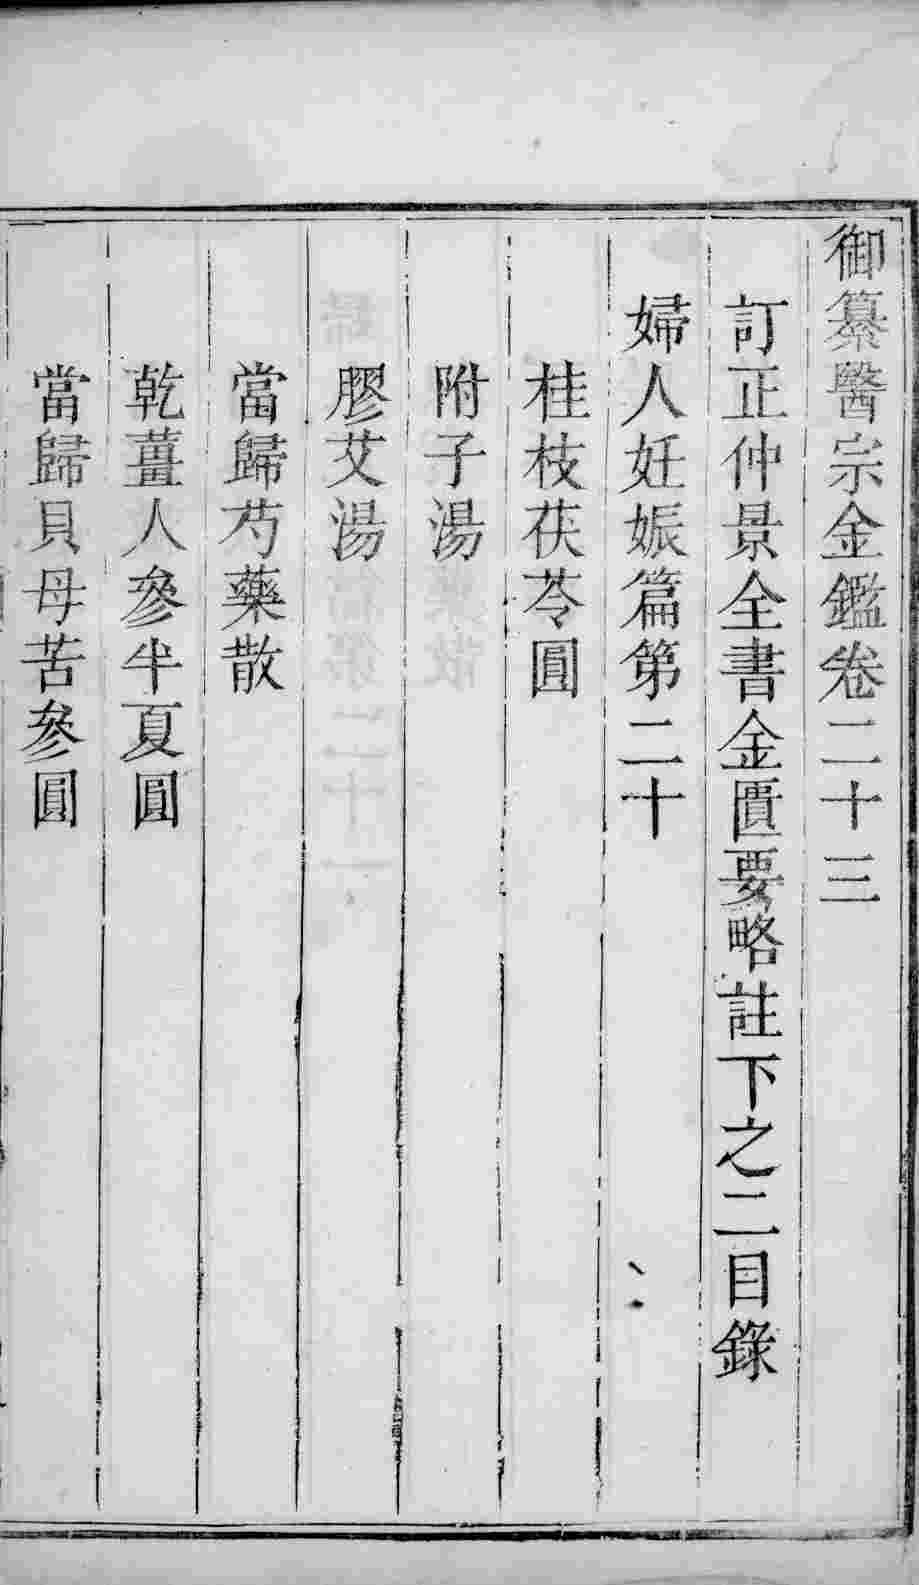 御纂醫宗金鑑卷二十三
訂正仲景全書金匱要略註下之二目錄
婦人妊娠篇第二十
桂枝茯苓圓
附子湯
膠艾湯
當歸芍藥散
乾薑人參半夏圓
當歸貝母苦參圓